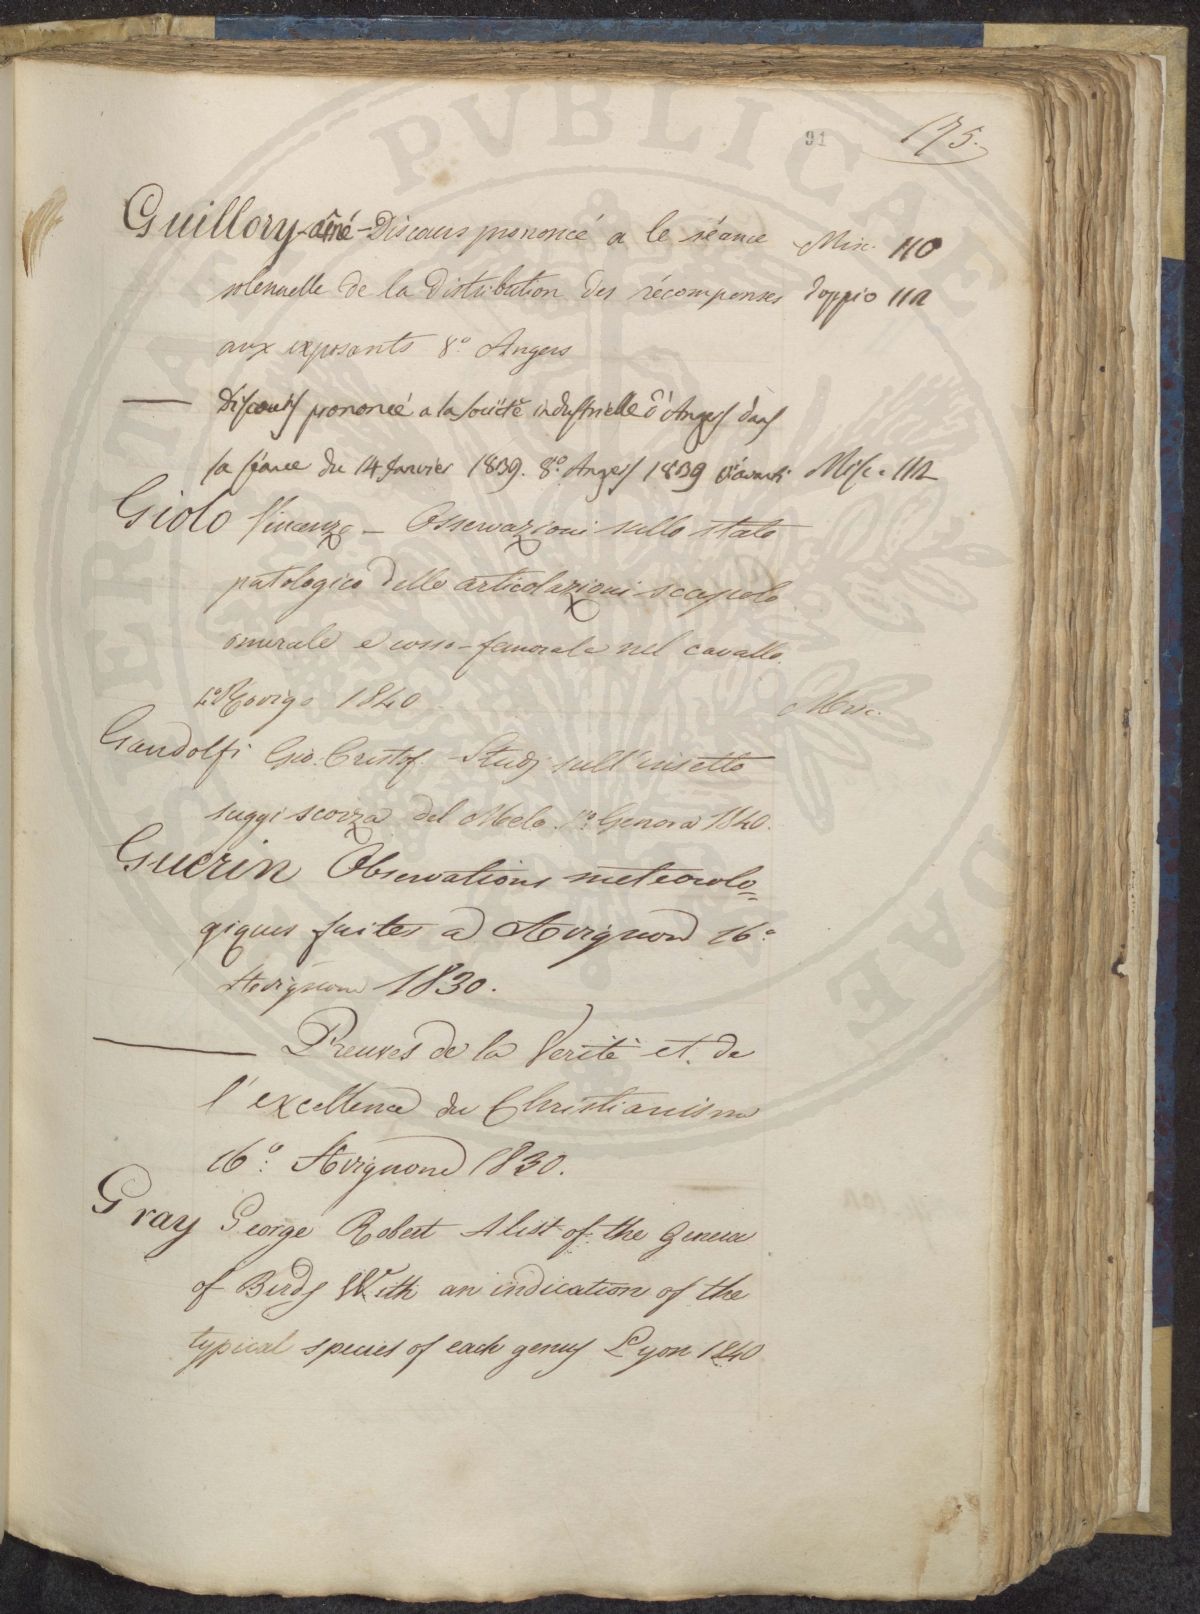 91 175.
Guillory aîné - Discours prononcé a le séance Misc. 110
solennelle de la distribution des récompenses doppio 112
aux exposants 8.º Angers
— Discours prononcé a la société industrielle d'Angers dans
sa séance du 14 Janvier 1839. 8.º Angers 1839 Misc. 112
Giolo Vincenzo - Osservazioni sullo stato
patologico delle articolazioni scapolo
omerale e cosso-femorale nel cavallo.
4.º Rovigo 1840 Misc.
Gandolfi Gio. Cristof. - Studj sull'insetto
suggi scorza del Melo. Genova 1840.
Guerin Observations meteorolo=
giques faites a Avignon 16.º
Avignone 1830.
— Preuves de la Verité et de
l'excellence du Christianisme
16.º Avignone 1830.
Gray George Robert A list of the Genera
of Birds With an indication of the
typical species of each genus Lyon 1840